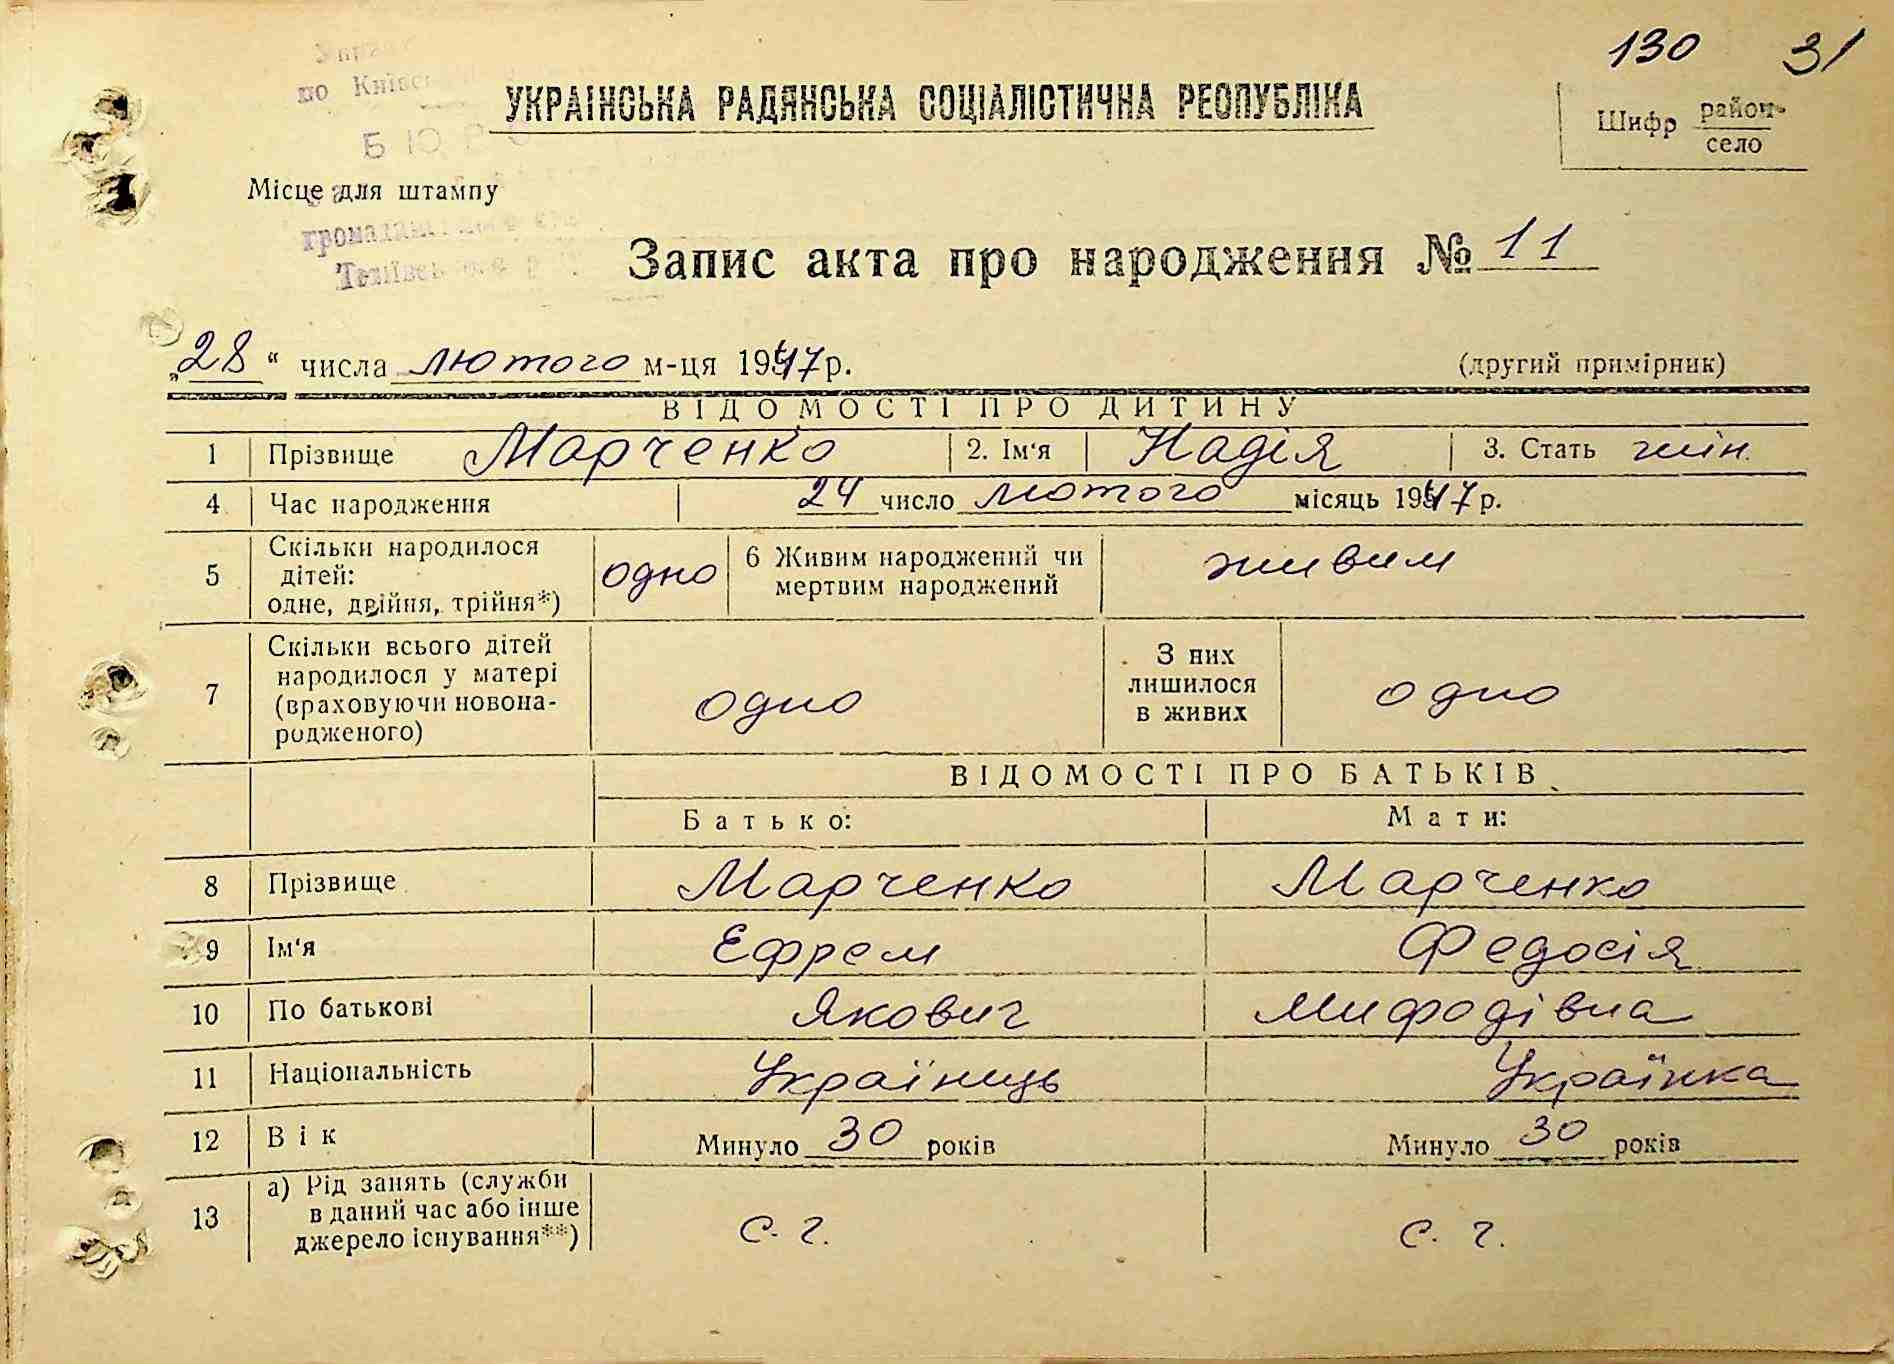 130 31
по Київс
УКРАЇНСЬКА РАДЯНСЬКА СОЦІАЛІСТИЧНА РЕСПУБЛІКА
Шифр район село
БЮРО
Місце для штампу
Запис акта про народження № 11
„28“ числа лютого м-ця 1947 р. (другий примірник)
ВІДОМОСТІ ПРО ДИТИНУ
1 Прізвище Марченко 2. Ім'я Надія 3. Стать жін.
4 Час народження 24 число лютого місяць 1947 р.
Скільки народилося
5 дітей: одно 6 Живим народжений чи живим
одне, двійня, трійня*) мертвим народжений
Скільки всього дітей З них
народилося у матері лишилося
7 (враховуючи новона- одно в живих одно
родженого)
ВІДОМОСТІ ПРО БАТЬКІВ
Батько: Мати:
8 Прізвище Марченко Марченко
9 Ім'я Ефрем Федосія
10 По батькові Якович Мифодівна
11 Національність Українець Українка
12 Вік Минуло 30 років Минуло 30 років
а) Рід занять (служби
13 в даний час або інше с. г. с. г.
джерело існування**)